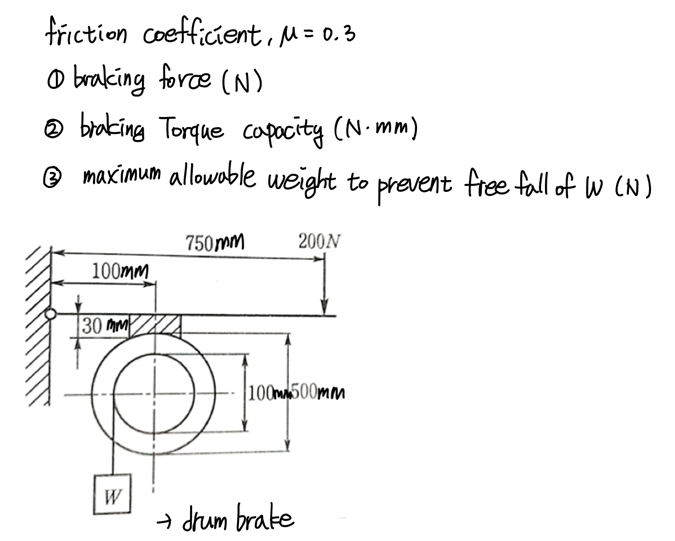 friction coefficient, μ = 0.3
① braking force (N)
② braking Torque capacity (N·mm)
③ maximum allowable weight to prevent free fall of W (N)
750mm
200N
100mm
30 mm
100mm
500mm
W
→ drum brake